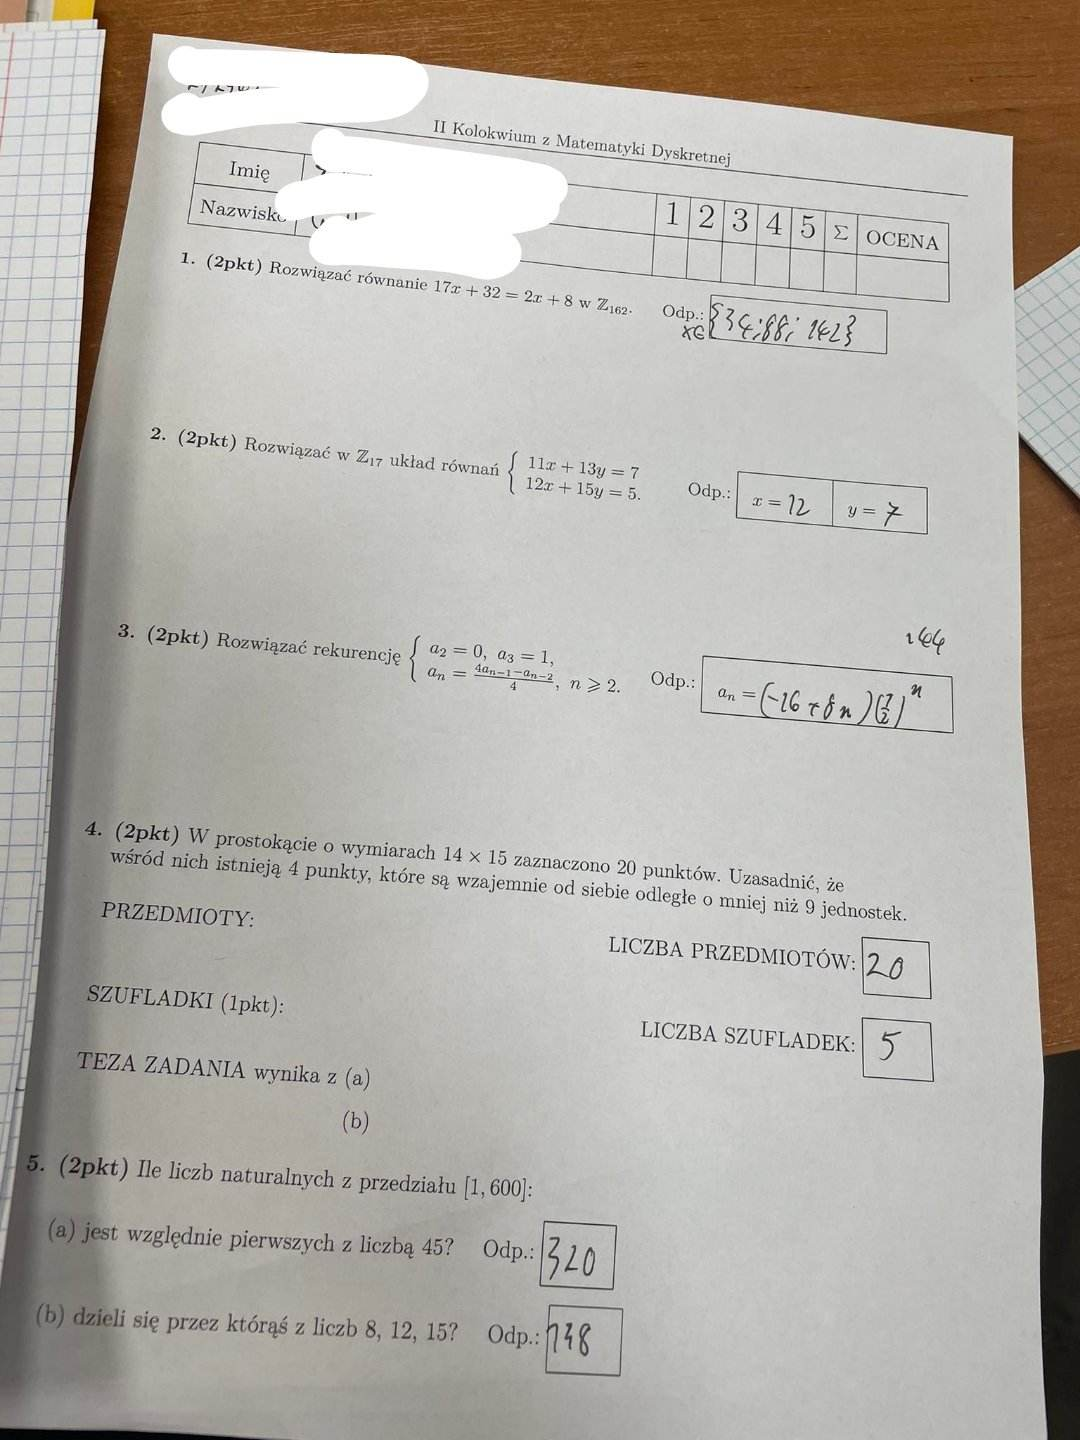 II Kolokwium z Matematyki Dyskretnej
Imię
Nazwisko
1 2 3 4 5 Σ OCENA
1. (2pkt) Rozwiązać równanie 17x + 32 = 2x + 8 w ℤ₁₆₂. Odp.: x∈ {34; 88; 142}
2. (2pkt) Rozwiązać w ℤ₁₇ układ równań { 11x + 13y = 7
12x + 15y = 5. Odp.: x = 12 y = 7
144
3. (2pkt) Rozwiązać rekurencję { a₂ = 0, a₃ = 1,
aₙ = (4aₙ₋₁−aₙ₋₂)/4, n ⩾ 2. Odp.: aₙ = (-16 + 8n)(1/2)ⁿ
4. (2pkt) W prostokącie o wymiarach 14 × 15 zaznaczono 20 punktów. Uzasadnić, że
wśród nich istnieją 4 punkty, które są wzajemnie od siebie odległe o mniej niż 9 jednostek.
PRZEDMIOTY: LICZBA PRZEDMIOTÓW: 20
SZUFLADKI (1pkt): LICZBA SZUFLADEK: 5
TEZA ZADANIA wynika z (a)
(b)
5. (2pkt) Ile liczb naturalnych z przedziału [1, 600]:
(a) jest względnie pierwszych z liczbą 45? Odp.: 320
(b) dzieli się przez którąś z liczb 8, 12, 15? Odp.: